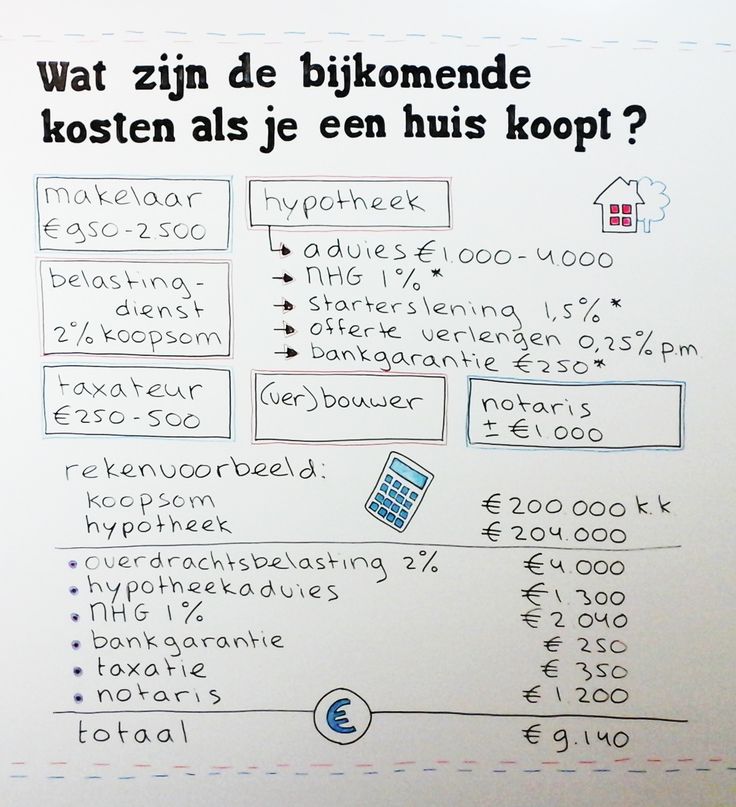 Wat zijn de bijkomende
kosten als je een huis koopt?
makelaar
€ 950 - 2.500
belasting-
dienst
2% koopsom
taxateur
€ 250 - 500
hypotheek
advies € 1.000 - 4.000
NHG 1% *
starterslening 1,5% *
offerte verlengen 0,25% p.m.
bankgarantie € 250 *
(ver)bouwer
notaris
± € 1.000
rekenvoorbeeld:
koopsom € 200.000 k.k
hypotheek € 204.000
• overdrachtsbelasting 2% € 4.000
• hypotheekadvies € 1.300
• NHG 1% € 2.040
• bankgarantie € 250
• taxatie € 350
• notaris € 1.200
€
totaal € 9.140